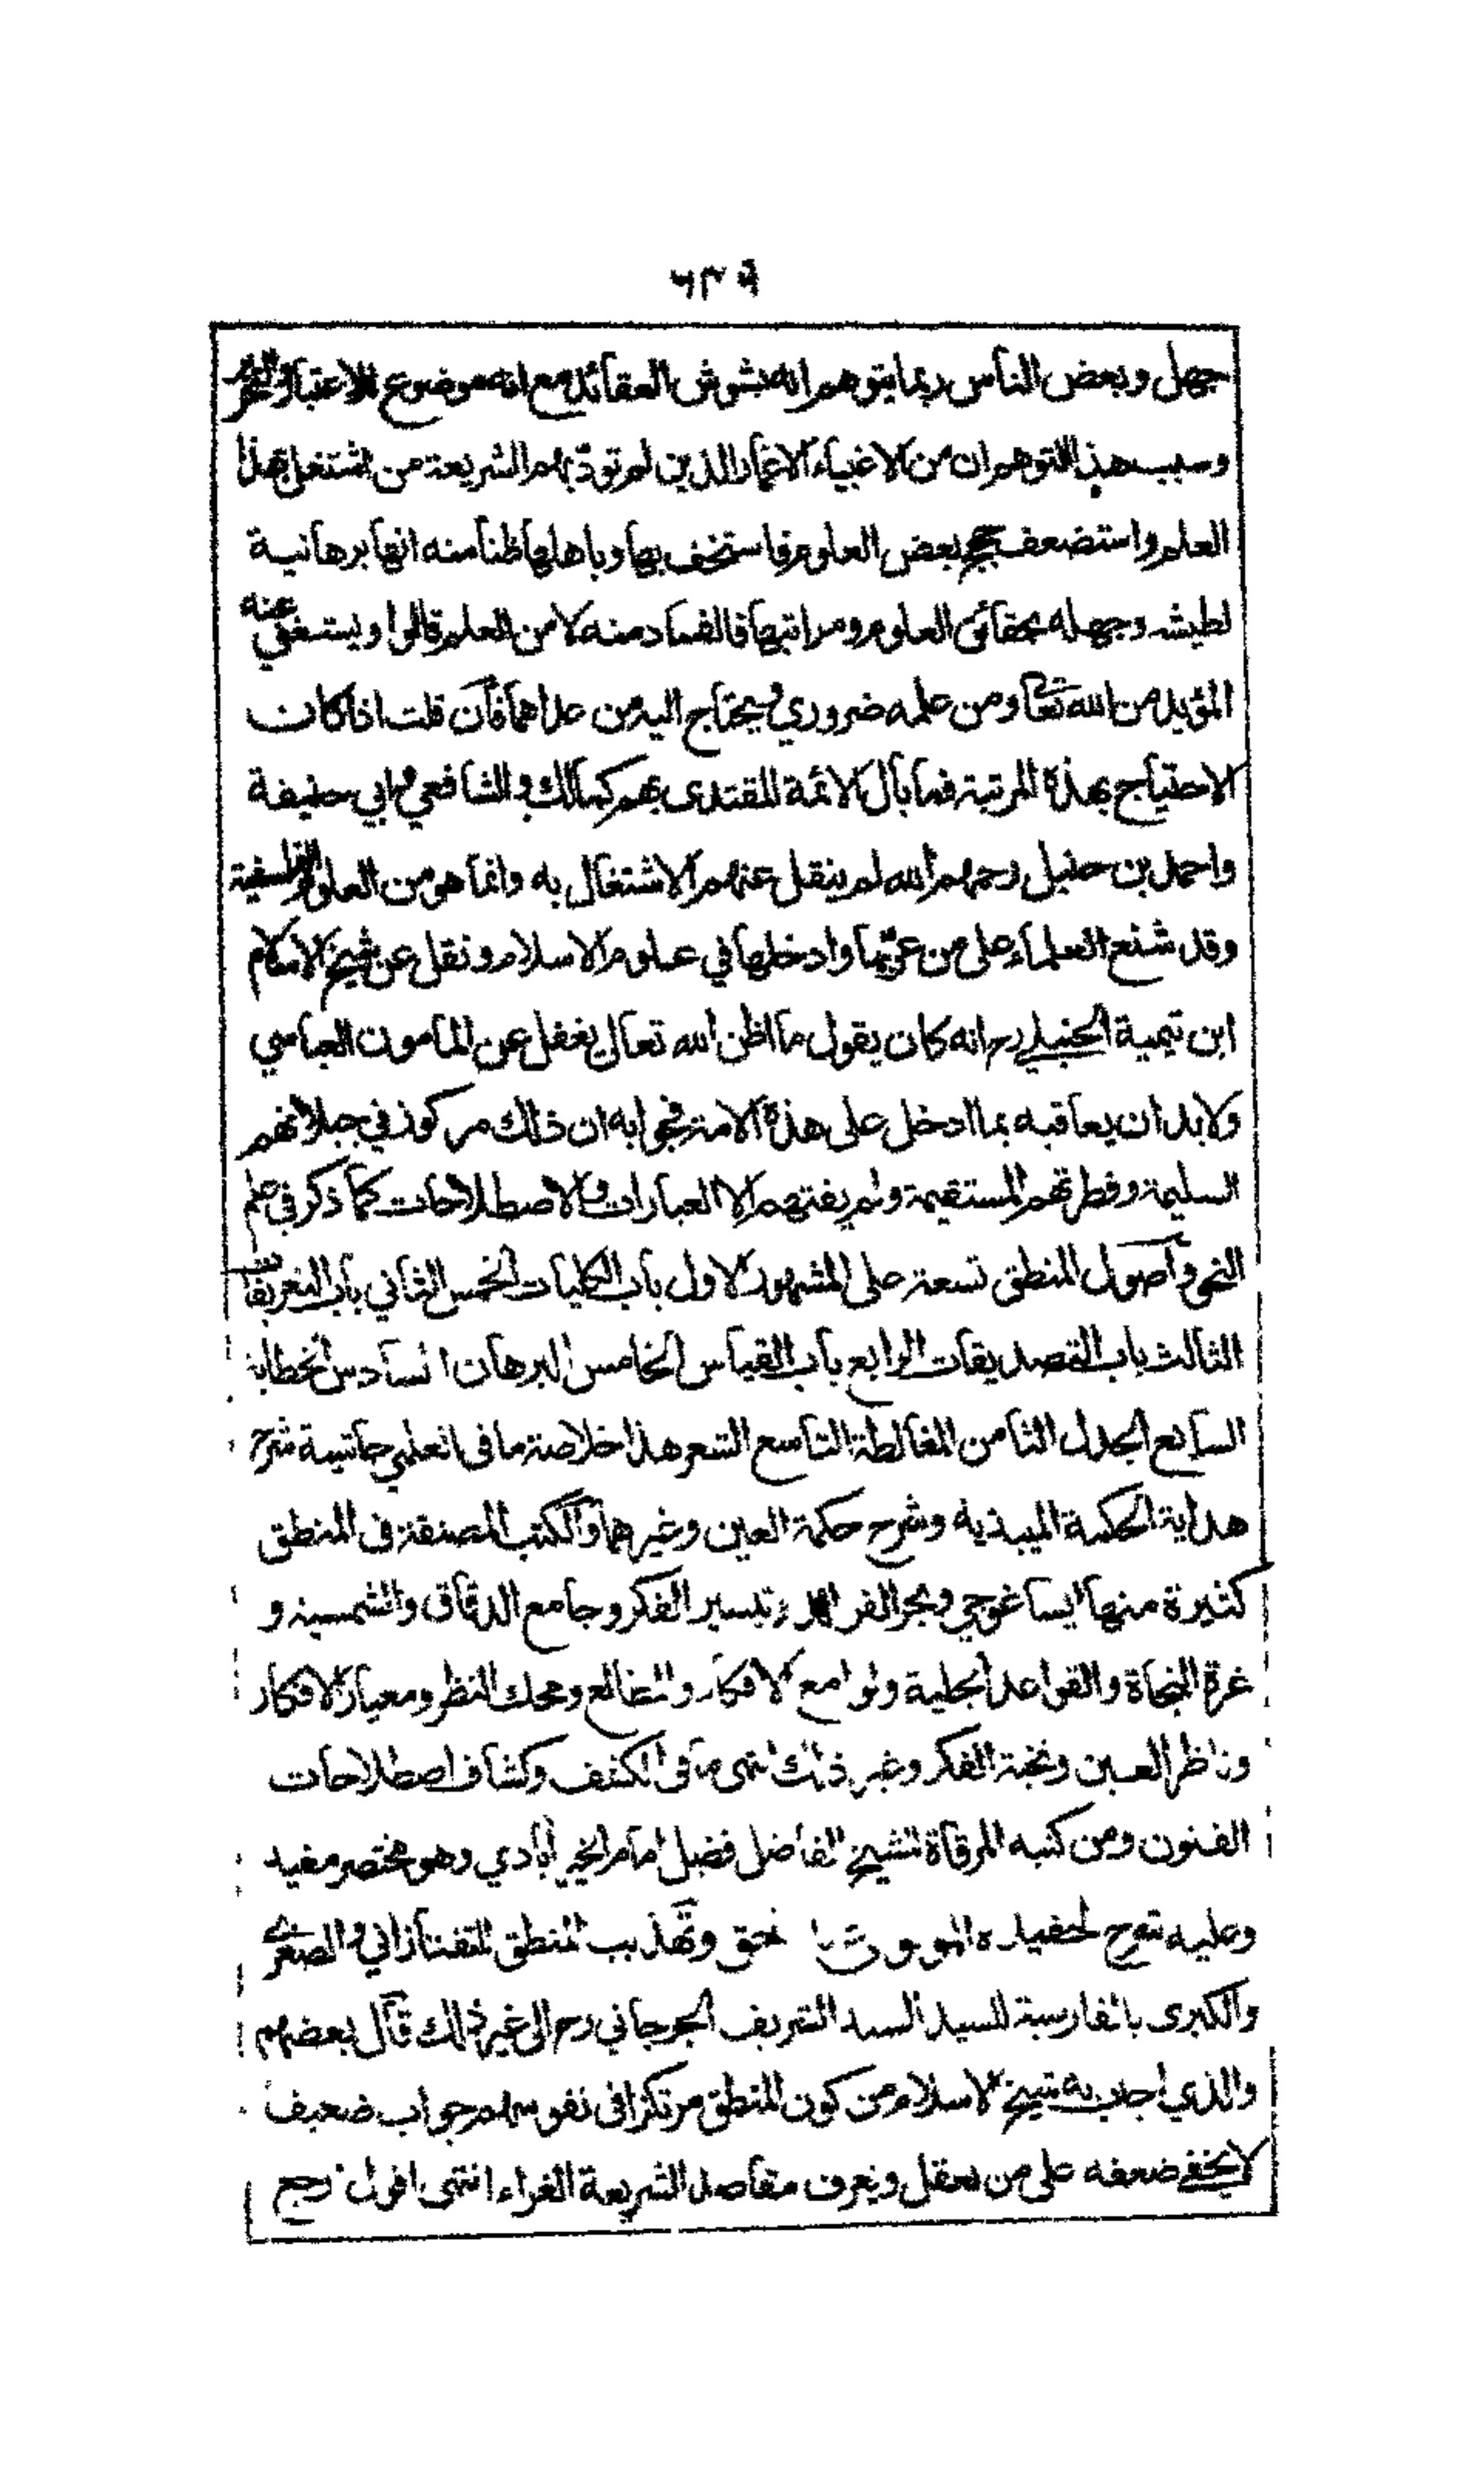 ٦٣٩
جهل وبعض الناس ربما يتوهم انه يشوش العقائد مع انه موضوع للاعتبار والتحرير
وسبب هذا التوهم ان من الاغبياء الاغمار الذين لم تؤدبهم الشريعة من اشتغل بهذا
العلم واستضعف حجج بعض العلوم فاستخف بها وباهلها ظنا منه انها برهانية
لطيشه وجهله بحقائق العلوم ومراتبها فالفساد منه لا من العلم قالوا ويستغني عنه
المؤيد من الله تعالى ومن علمه ضروري ويحتاج اليه من عداهما فان قلت اذا كان
الاحتياج بهذه المرتبة فما بال الائمة المقتدى بهم كمالك والشافعي وابي حنيفة
واحمد بن حنبل رحمهم الله لم ينقل عنهم الاشتغال به وانما هو من العلوم الفلسفية
وقد شنع العلماء على من عربها وادخلها في علوم الاسلام ونقل عن شيخ الاسلام
ابن تيمية الحنبلي رح انه كان يقول ما اظن الله تعالى يغفل عن المامون العباسي
ولابد ان يعاقبه بما ادخل على هذه الامة فجوابه ان ذلك مركوز في جبلاتهم
السليمة وفطرتهم المستقيمة ولم يفتهم الا العبارات والاصطلاحات كما ذكر في علم
النحو واصول المنطق تسعة على المشهور الاول باب الكليات الخمس الثاني باب التعريفات
الثالث باب التصديقات الرابع باب القياس الخامس البرهان السادس الخطابة
السابع الجدل الثامن المغالطة التاسع الشعر هذا خلاصة ما في العلمي حاشية شرح
هداية الحكمة الميبذية وشرح حكمة العين وغيرهما والكتب المصنفة في المنطق
كثيرة منها ايساغوجي وبحر الفوائد وتيسير الفكر وجامع الدقائق والشمسية و
غرة النجاة والقواعد الجلية ولوامع الافكار والمطالع ومحك النظر ومعيار الافكار
وناظر العين ونخبة الفكر وغير ذلك انتهى ما في الكشف وكشاف اصطلاحات
الفنون ومن كتبه المرقاة للشيخ الفاضل فضل امام الخير ابادي وهو مختصر مفيد
وعليه شرح لحفيده المولوي عبد الحق وتهذيب المنطق للتفتازاني والصغرى
والكبرى بالفارسية للسيد السند الشريف الجرجاني رح الى غير ذلك قال بعضهم
والذي اجاب به شيخ الاسلام من كون المنطق مرتكزا في نفوسهم جواب ضعيف
لا يخفى ضعفه على من يعقل ويعرف مقاصد الشريعة الغراء انتهى اقول رجح